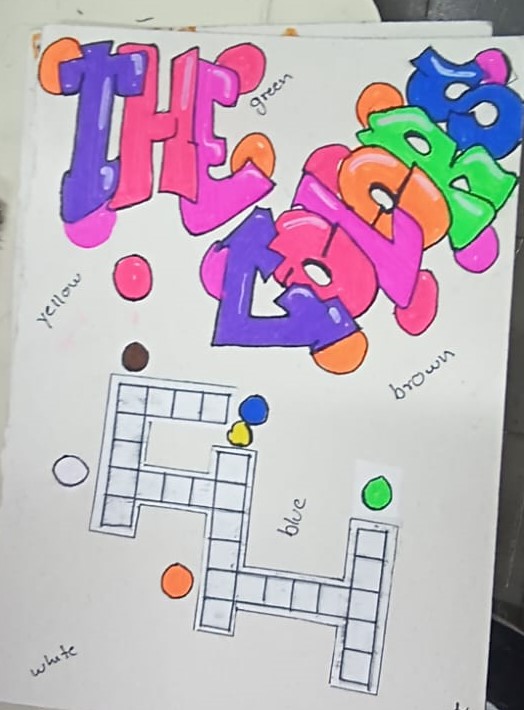 THE
COLORS
green
yellow
brown
blue
white